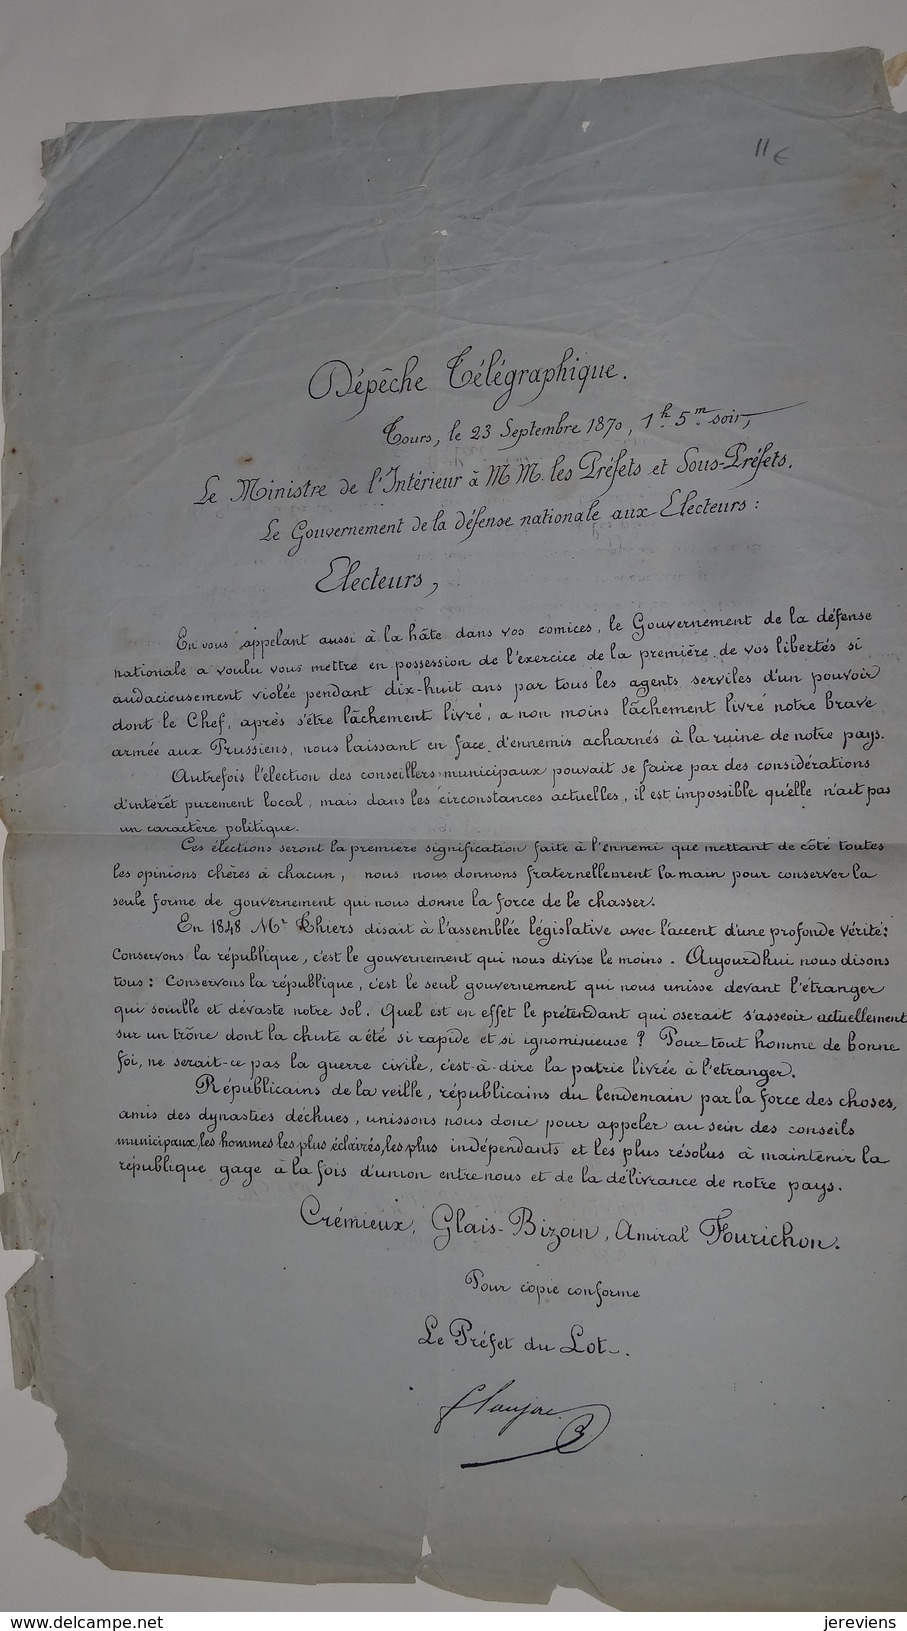 11 €
Dépêche Télégraphique.
Tours, le 23 Septembre 1870, 1h. 5m. soir,
Le Ministre de l'Intérieur à MM. les Préfets et Sous-Préfets.
Le Gouvernement de la défense nationale aux Electeurs :
Electeurs,
En vous appelant aussi à la hâte dans vos comices, le Gouvernement de la défense
nationale a voulu vous mettre en possession de l'exercice de la première de vos libertés si
audacieusement violée pendant dix-huit ans par tous les agents serviles d'un pouvoir
dont le Chef, après s'être lâchement livré, a non moins lâchement livré notre brave
armée aux Prussiens, nous laissant en face d'ennemis acharnés à la ruine de notre pays.
Autrefois l'élection des conseillers municipaux pouvait se faire par des considérations
d'interêt purement local, mais dans les circonstances actuelles, il est impossible qu'elle n'ait pas
un caractère politique.
Ces élections seront la première signification faite à l'ennemi que mettant de côté toutes
les opinions chères à chacun, nous nous donnons fraternellement la main pour conserver la
seule forme de gouvernement qui nous donne la force de le chasser.
En 1848 Mr Thiers disait à l'assemblée législative avec l'accent d'une profonde vérité :
Conservons la république, c'est le gouvernement qui nous divise le moins. Aujourd'hui nous disons
tous : Conservons la république, c'est le seul gouvernement qui nous unisse devant l'étranger
qui souille et dévaste notre sol. Quel est en effet le prétendant qui oserait s'asseoir actuellement
sur un trône dont la chute a été si rapide et si ignominieuse ? Pour tout homme de bonne
foi, ne serait-ce pas la guerre civile, c'est-à-dire la patrie livrée à l'etranger.
Républicains de la veille, républicains du lendemain par la force des choses,
amis des dynasties déchues, unissons nous donc pour appeler au sein des conseils
municipaux, les hommes les plus éclairés, les plus indépendants et les plus résolus à maintenir la
république gage à la fois d'union entre nous et de la délivrance de notre pays.
Crémieux, Glais-Bizoin, Amiral Fourichon.
Pour copie conforme
Le Préfet du Lot.
delcampe.net
jereviens